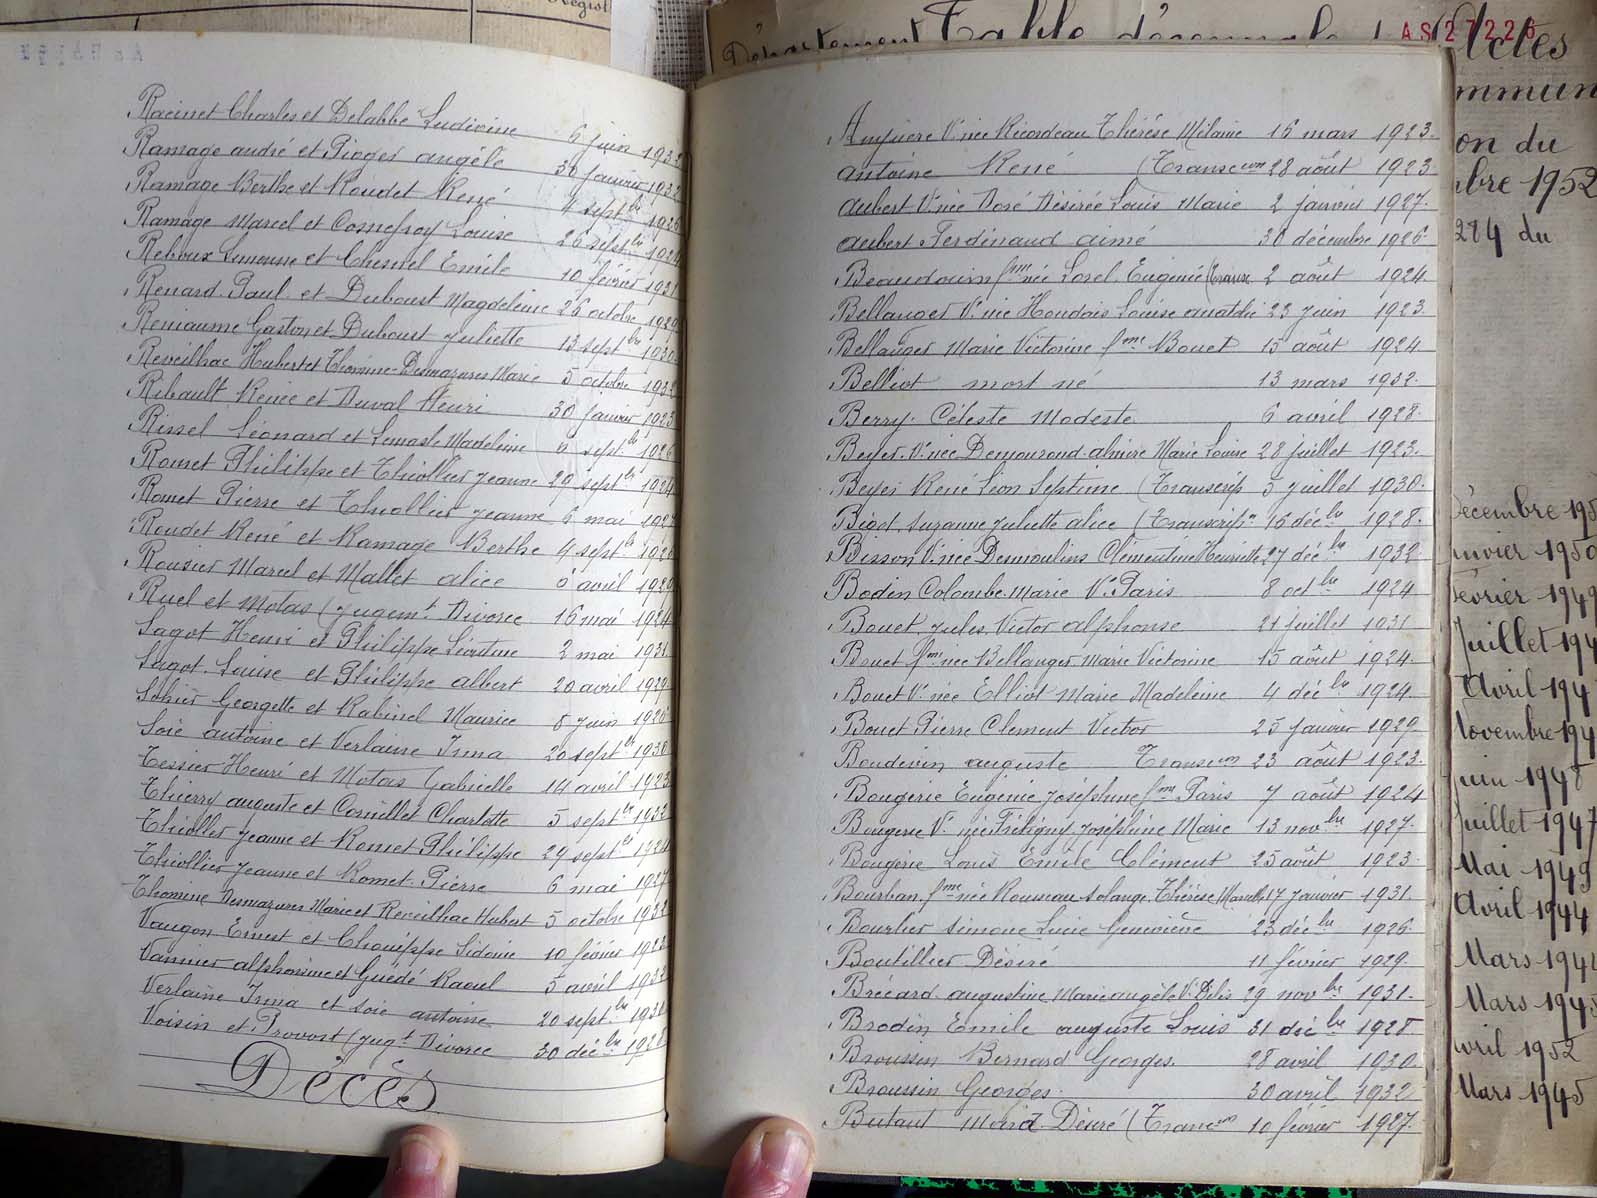 Régist
Département Table décennale Actes
AS27226
Racinet Charles et Delabbe Ludivine 6 juin 193
Ramage andré et Pioger angèle 30 janvier 1932
Ramage Berthe et Roudet René 4 sept bre 1926
Ramage Marcel et Cosnefroy Louise 26 sept bre 1924
Reboux Simonne et Chesnel Emile 10 février 1931
Renard Paul et Duboust Magdeleine 26 octobre 192
Reniaume Gaston et Duboust Juliette 13 sept bre 1930
Réveilhac Hubert et Thomine-Desmazures Marie 5 octobre 1932
Ribault Renée et Duval Henri 30 janvier 1923
Rissel Léonard et Lemasle Madeleine sept bre 1926
Romet Philippe et Thiollier Jeanne 29 sept bre 1924
Romet Pierre et Thiollier Jeanne 6 mai 1927
Roudet René et Ramage Berthe 4 sept bre 1926
Rousier Marcel et Mallet alice avril 192
Ruel et Motas (jugemt Divorce 16 mai 1924
Sagot Henri et Philippe Léontine 2 mai 1931
Sagot Louise et Philippe albert 20 avril 1929
Sohier Georgette et Rabinel Maurice 8 juin 1926
Soie antoine et Verlaine Irma 20 sept bre 1930
Tessier Henri et Motas Gabrielle 14 avril 1923
Thierry auguste et Cornillet Charlotte 5 sept bre 1932
Thiollier Jeanne et Romet Philippe 29 sept bre 1924
Thiollier Jeanne et Romet Pierre 6 mai 1927
Thomine Desmazures Marie et Reveilhac Hubert 5 octobre 1932
Vaugon Ernest et Chouippe Sidonie 10 février 1923
Vannier alphonsine et Guédé Raoul 5 avril 1932
Verlaine Irma et soie antoine 20 sept bre 1930
Voisin et Provost (jugt Divorce 30 déc bre 1928
Décès
Anquere Ve née Ricordeau Thérèse Mélanie 16 mars 1923
antoine René (Transcon 28 août 1923
aubert Ve née Doré Désirée Louis Marie 2 janvier 1927
aubert Ferdinand aimé 30 décembre 1926
Beaudouin fme née Lorel Eugénie (Trans 2 août 1924
Bellanger Ve née Houdois Louise anatolie 23 juin 1923
Bellanger Marie Victorine fme Bouet 15 août 1924
Belliot mort né 13 mars 1932
Berry Céleste Modeste 6 avril 1928
Beyer Ve née Demourond alnire Marie Louise 28 juillet 1923
Beyer René Léon Septime (Transcrip 5 juillet 1930
Bigot Suzanne Juliette alice (Transcripn 16 déc bre 1928
Bisson Ve née Desmoulins Clémentine Henriette 27 déc bre 1932
Bodin Colombe Marie Ve Paris 8 oct bre 1924
Bouet Jules Victor alphonse 21 juillet 1931
Bouet fme née Bellanger Marie Victorine 15 août 1924
Bouet Ve née Elliot Marie Madeleine 4 déc bre 1924
Bouet Pierre Clement Victor 25 janvier 1929
Boudevin auguste Transcon 23 août 1923
Bougerie Eugénie Joséphine fme Paris 7 août 1924
Bougerie Ve née Frétigny Joséphine Marie 13 nov bre 1927
Bougerie Louis Emile Clément 25 août 1923
Bourban fme née Rousseau solange Thérèse Marcelle 17 janvier 1931
Bourlier Simone Lucie Geneviève 23 déc bre 1926
Boutillier Désiré 11 février 1929
Brécard augustine Marie angèle Ve Delis 29 nov bre 1931
Brodin Emile auguste Louis 31 déc bre 1928
Broussin Bernard Georges 28 avril 1930
Broussin Georges 30 avril 1932
Butaut Marie Désiré (Transcon 10 février 1927
mmun
on du
bre 1952
284 du
Décembre 195
anvier 1950
Février 1949
Juillet 194
Avril 194
Novembre 194
juin 1948
Juillet 1947
Mai 1949
Avril 1944
Mars 194
Mars 1945
avril 1952
Mars 1945